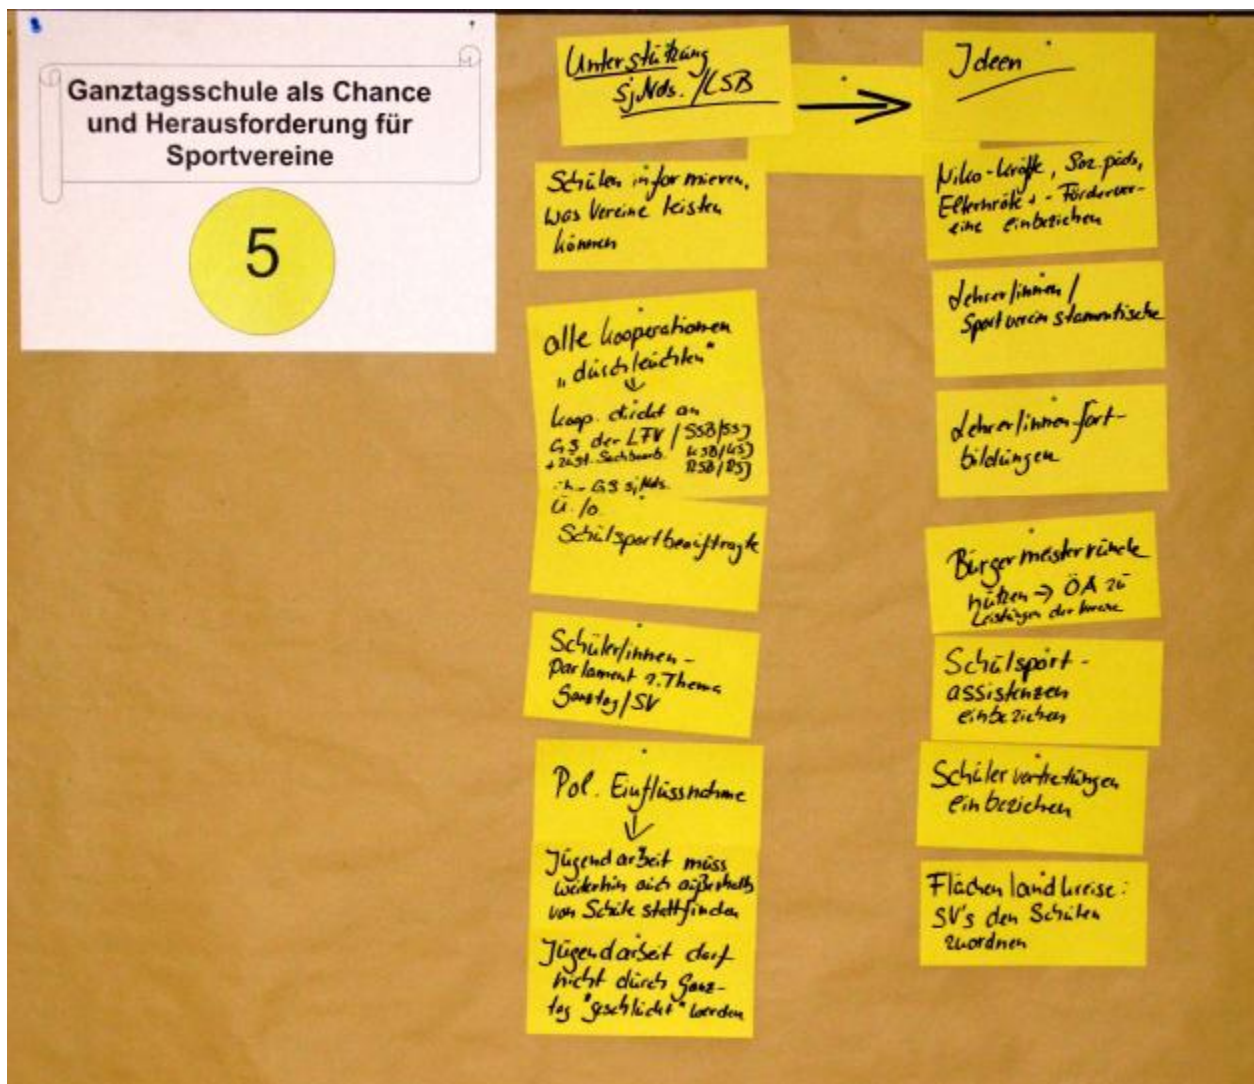 Ganztagsschule als Chance
und Herausforderung für
Sportvereine
5
Unterstützung
sj Nds. / LSB
Schulen informieren,
was Vereine leisten
können
alle Kooperationen
„durchleuchten"
Koop. direkt an
GS der LFV / SSB/SSJ
+ zust. Sachbearb. KSB/KSJ
RSB/RSJ
GS sj Nds.
u./o.
Schulsportbeauftragte
Schüler/innen-
parlament z. Thema
Ganztag/SV
Pol. Einflussnahme
Jugendarbeit muss
weiterhin auch außerhalb
von Schule stattfinden
Jugendarbeit darf
nicht durch Ganz-
tag "geschluckt" werden
Ideen
Niko-Kräfte, Soz.päds,
Elternräte + -Förderver-
eine einbeziehen
Lehrer/innen/
Sportvereinstammtische
Lehrer/innen-fort-
bildungen
Bürgermeisterrunde
nutzen → ÖA zu
Leistungen der Vereine
Schulsport-
assistenzen
einbeziehen
Schülervertretungen
einbeziehen
Flächenlandkreise:
SV's den Schulen
zuordnen